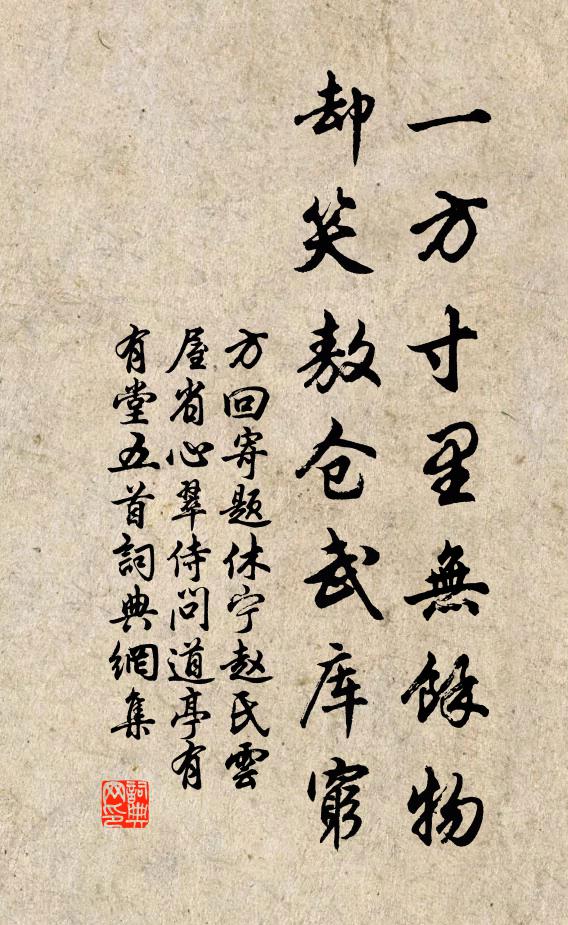 一方寸里無餘物
却笑敖仓武库窮
方回寄题休宁赵氏雲
屋省心翠侍问道亭有
有堂五首詞典網集
詞典
网印